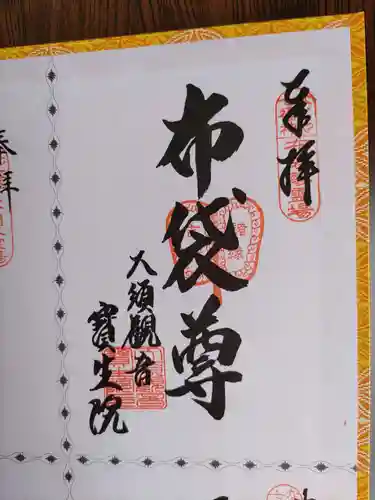 奉拝
布袋尊
大須観音
寳生院
奉拝